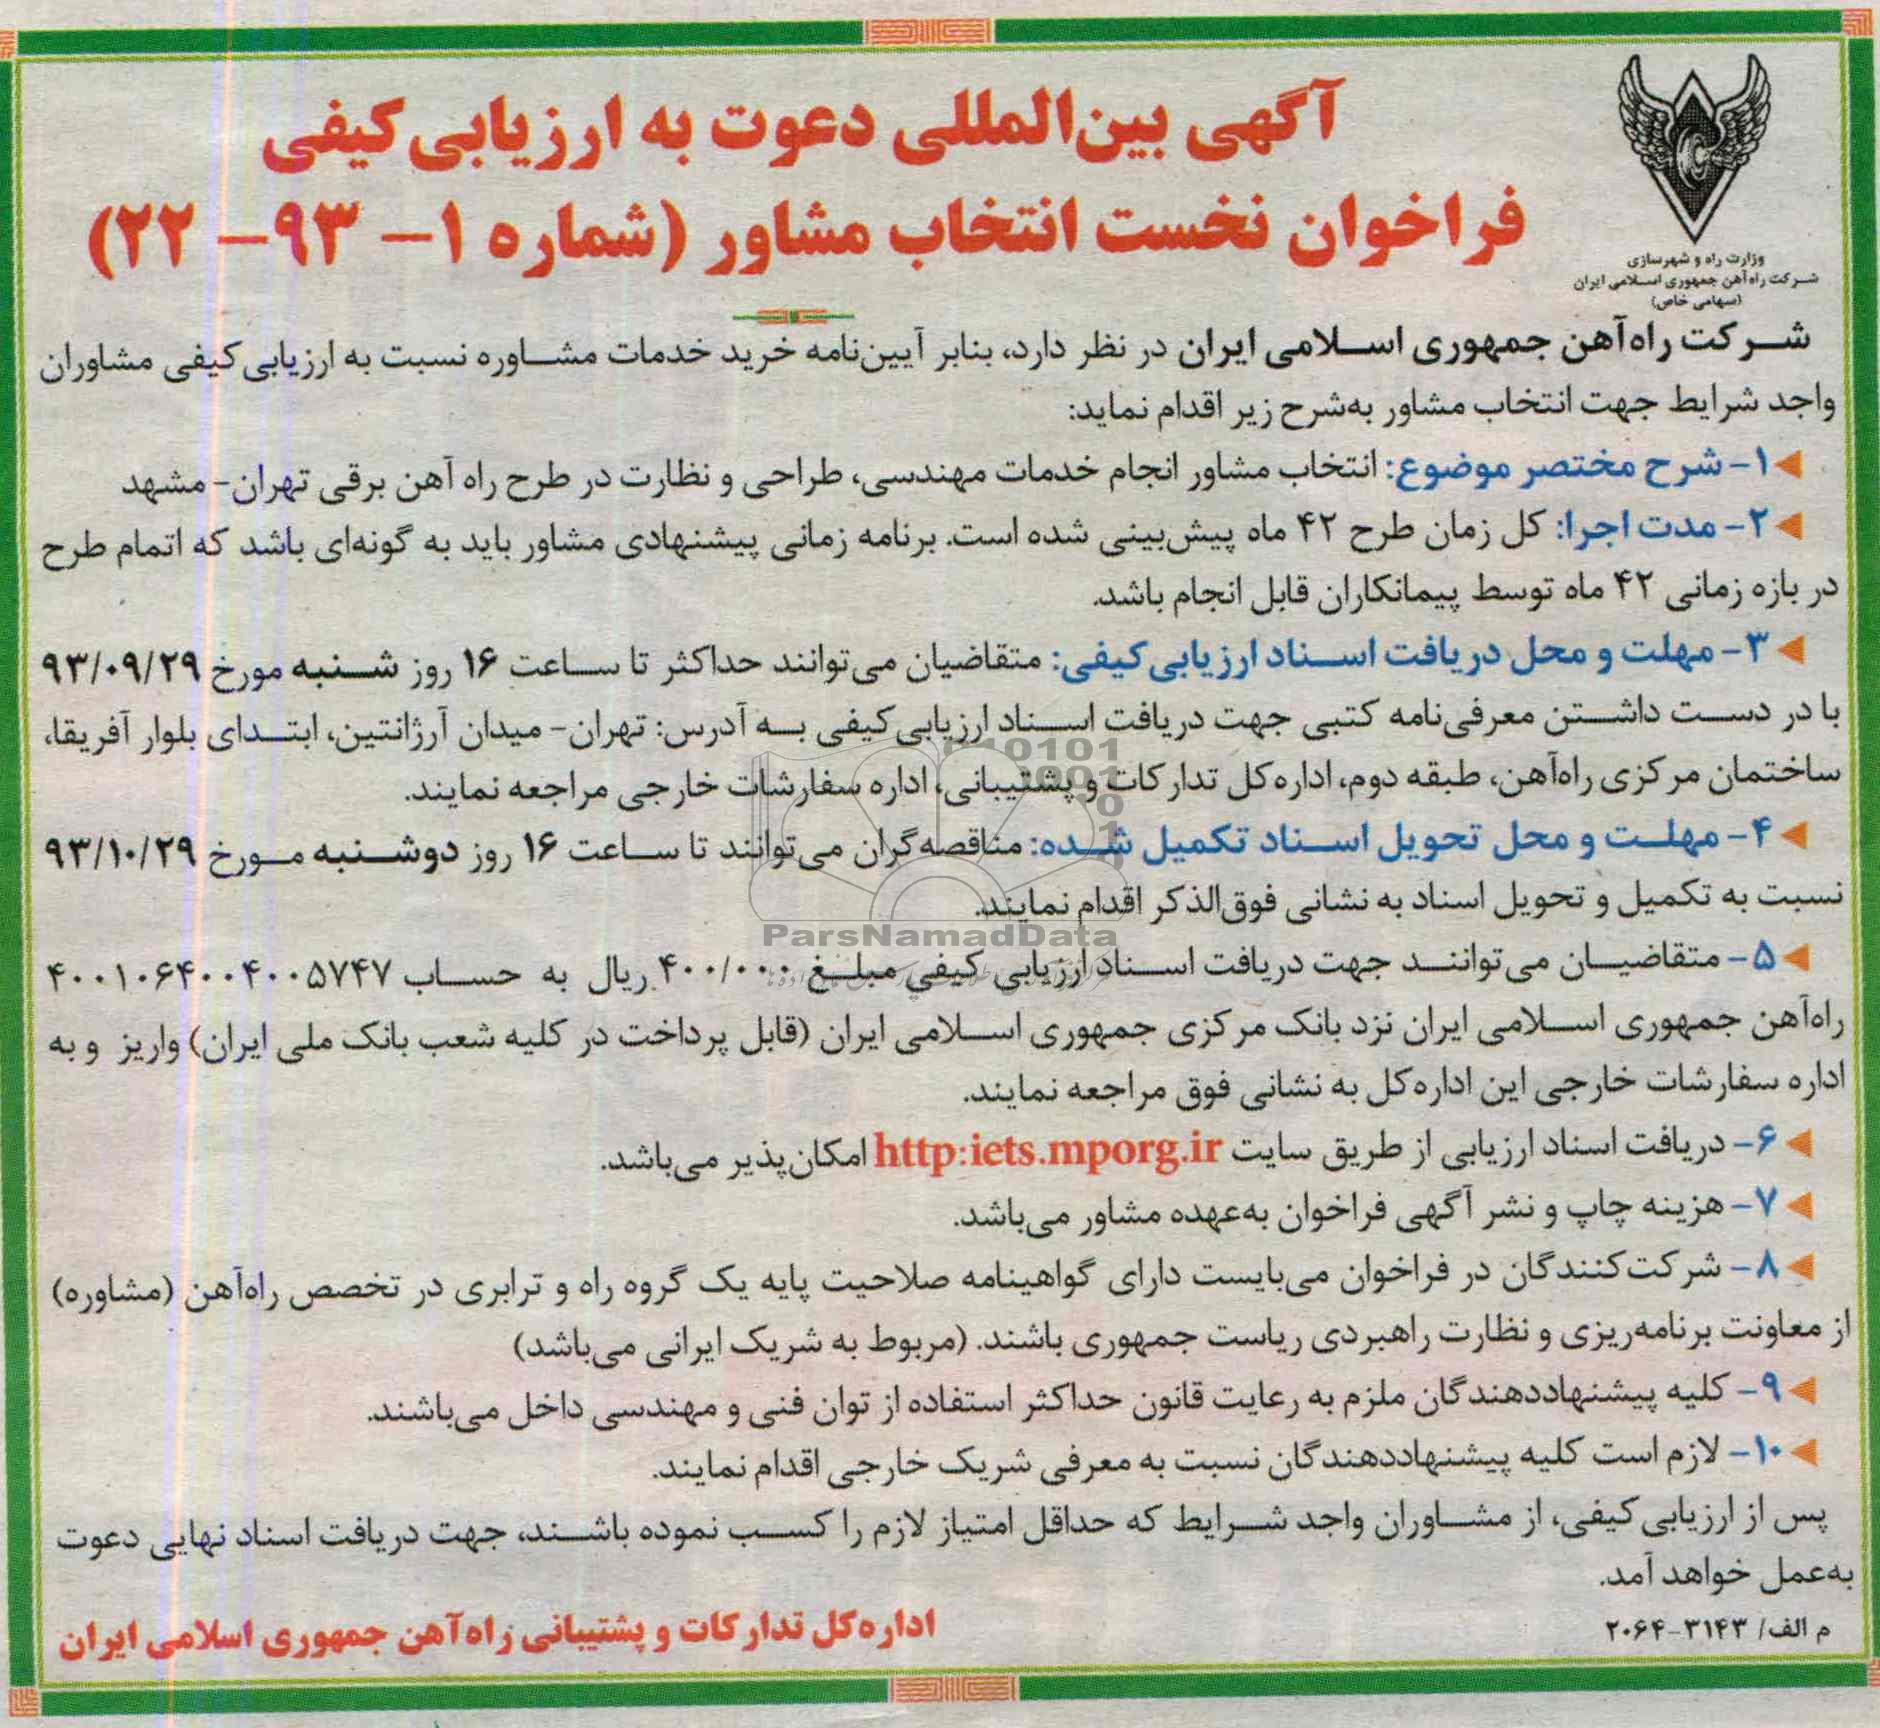 آگهی بین‌المللی دعوت به ارزیابی کیفی
فراخوان نخست انتخاب مشاور (شماره ۱- ۹۳- ۲۲)
وزارت راه و شهرسازی
شرکت راه‌آهن جمهوری اسلامی ایران
(سهامی خاص)
شرکت راه‌آهن جمهوری اسلامی ایران در نظر دارد، بنابر آیین‌نامه خرید خدمات مشاوره نسبت به ارزیابی کیفی مشاوران
واجد شرایط جهت انتخاب مشاور به‌شرح زیر اقدام نماید:
۱- شرح مختصر موضوع: انتخاب مشاور انجام خدمات مهندسی، طراحی و نظارت در طرح راه آهن برقی تهران- مشهد
۲- مدت اجرا: کل زمان طرح ۴۲ ماه پیش‌بینی شده است. برنامه زمانی پیشنهادی مشاور باید به گونه‌ای باشد که اتمام طرح
در بازه زمانی ۴۲ ماه توسط پیمانکاران قابل انجام باشد.
۳- مهلت و محل دریافت اسناد ارزیابی کیفی: متقاضیان می‌توانند حداکثر تا ساعت ۱۶ روز شنبه مورخ ۹۳/۰۹/۲۹
با در دست داشتن معرفی‌نامه کتبی جهت دریافت اسناد ارزیابی کیفی به آدرس: تهران- میدان آرژانتین، ابتدای بلوار آفریقا،
ساختمان مرکزی راه‌آهن، طبقه دوم، اداره‌کل تدارکات و پشتیبانی، اداره سفارشات خارجی مراجعه نمایند.
۴- مهلت و محل تحویل اسناد تکمیل شده: مناقصه‌گران می‌توانند تا ساعت ۱۶ روز دوشنبه مورخ ۹۳/۱۰/۲۹
نسبت به تکمیل و تحویل اسناد به نشانی فوق‌الذکر اقدام نمایند.
ParsNamadData
۵- متقاضیان می‌توانند جهت دریافت اسناد ارزیابی کیفی مبلغ ۴۰۰/۰۰۰ ریال به حساب ۴۰۰۱۰۶۴۰۰۴۰۰۵۷۴۷
راه‌آهن جمهوری اسلامی ایران نزد بانک مرکزی جمهوری اسلامی ایران (قابل پرداخت در کلیه شعب بانک ملی ایران) واریز و به
اداره سفارشات خارجی این اداره‌کل به نشانی فوق مراجعه نمایند.
۶- دریافت اسناد ارزیابی از طریق سایت http:iets.mporg.ir امکان‌پذیر می‌باشد.
۷- هزینه چاپ و نشر آگهی فراخوان به‌عهده مشاور می‌باشد.
۸- شرکت‌کنندگان در فراخوان می‌بایست دارای گواهینامه صلاحیت پایه یک گروه راه و ترابری در تخصص راه‌آهن (مشاوره)
از معاونت برنامه‌ریزی و نظارت راهبردی ریاست جمهوری باشند. (مربوط به شریک ایرانی می‌باشد)
۹- کلیه پیشنهاددهندگان ملزم به رعایت قانون حداکثر استفاده از توان فنی و مهندسی داخل می‌باشند.
۱۰- لازم است کلیه پیشنهاددهندگان نسبت به معرفی شریک خارجی اقدام نمایند.
پس از ارزیابی کیفی، از مشاوران واجد شرایط که حداقل امتیاز لازم را کسب نموده باشند، جهت دریافت اسناد نهایی دعوت
به‌عمل خواهد آمد.
م الف/ ۳۱۴۳-۲۰۶۴
اداره‌کل تدارکات و پشتیبانی راه‌آهن جمهوری اسلامی ایران